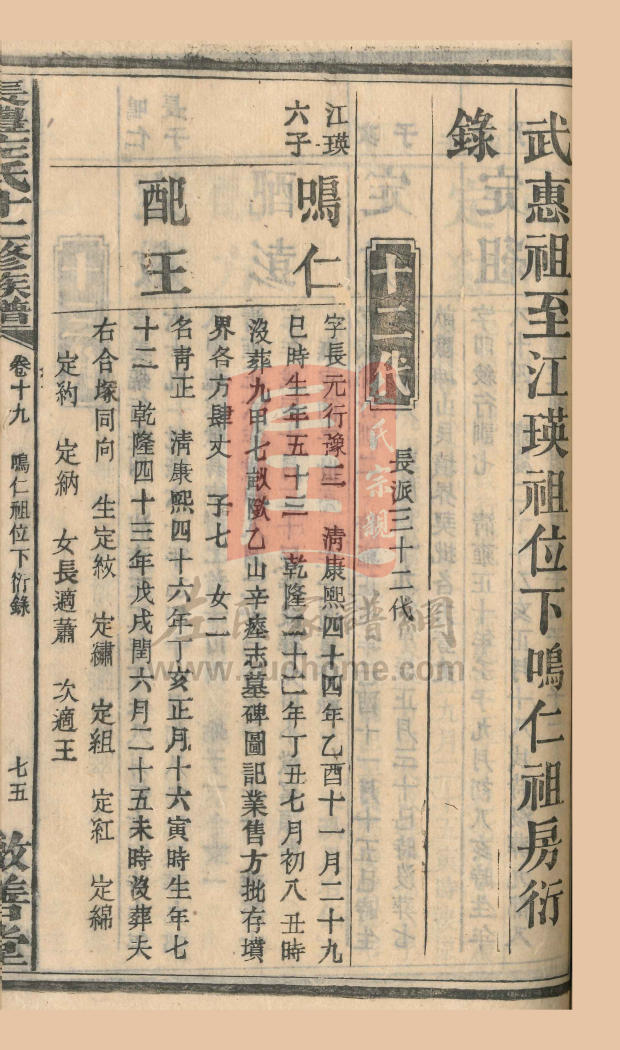 武惠祖至江瑛祖位下鳴仁祖房衍
錄
十二代
長派三十二代
江瑛
六子
鳴仁
字長元行豫三 清康熙四十四年乙酉十一月二十九
巳時生年五十三 乾隆二十二年丁丑七月初八丑時
沒葬九甲七畝墩乙山辛塟志墓碑圖記業售方批存墳
界各方肆丈 子七 女二
配王
名青正 清康熙四十六年丁亥正月十六寅時生年七
十二 乾隆四十三年戊戌閏六月二十五未時沒葬夫
右合塚同向 生定紋 定繡 定組 定紅 定綿
定約 定納 女長適蕭 次適王
長澧左氏十二修族譜
卷十九 鳴仁祖位下衍錄
七五
敦善堂
左氏宗親
左氏家譜網